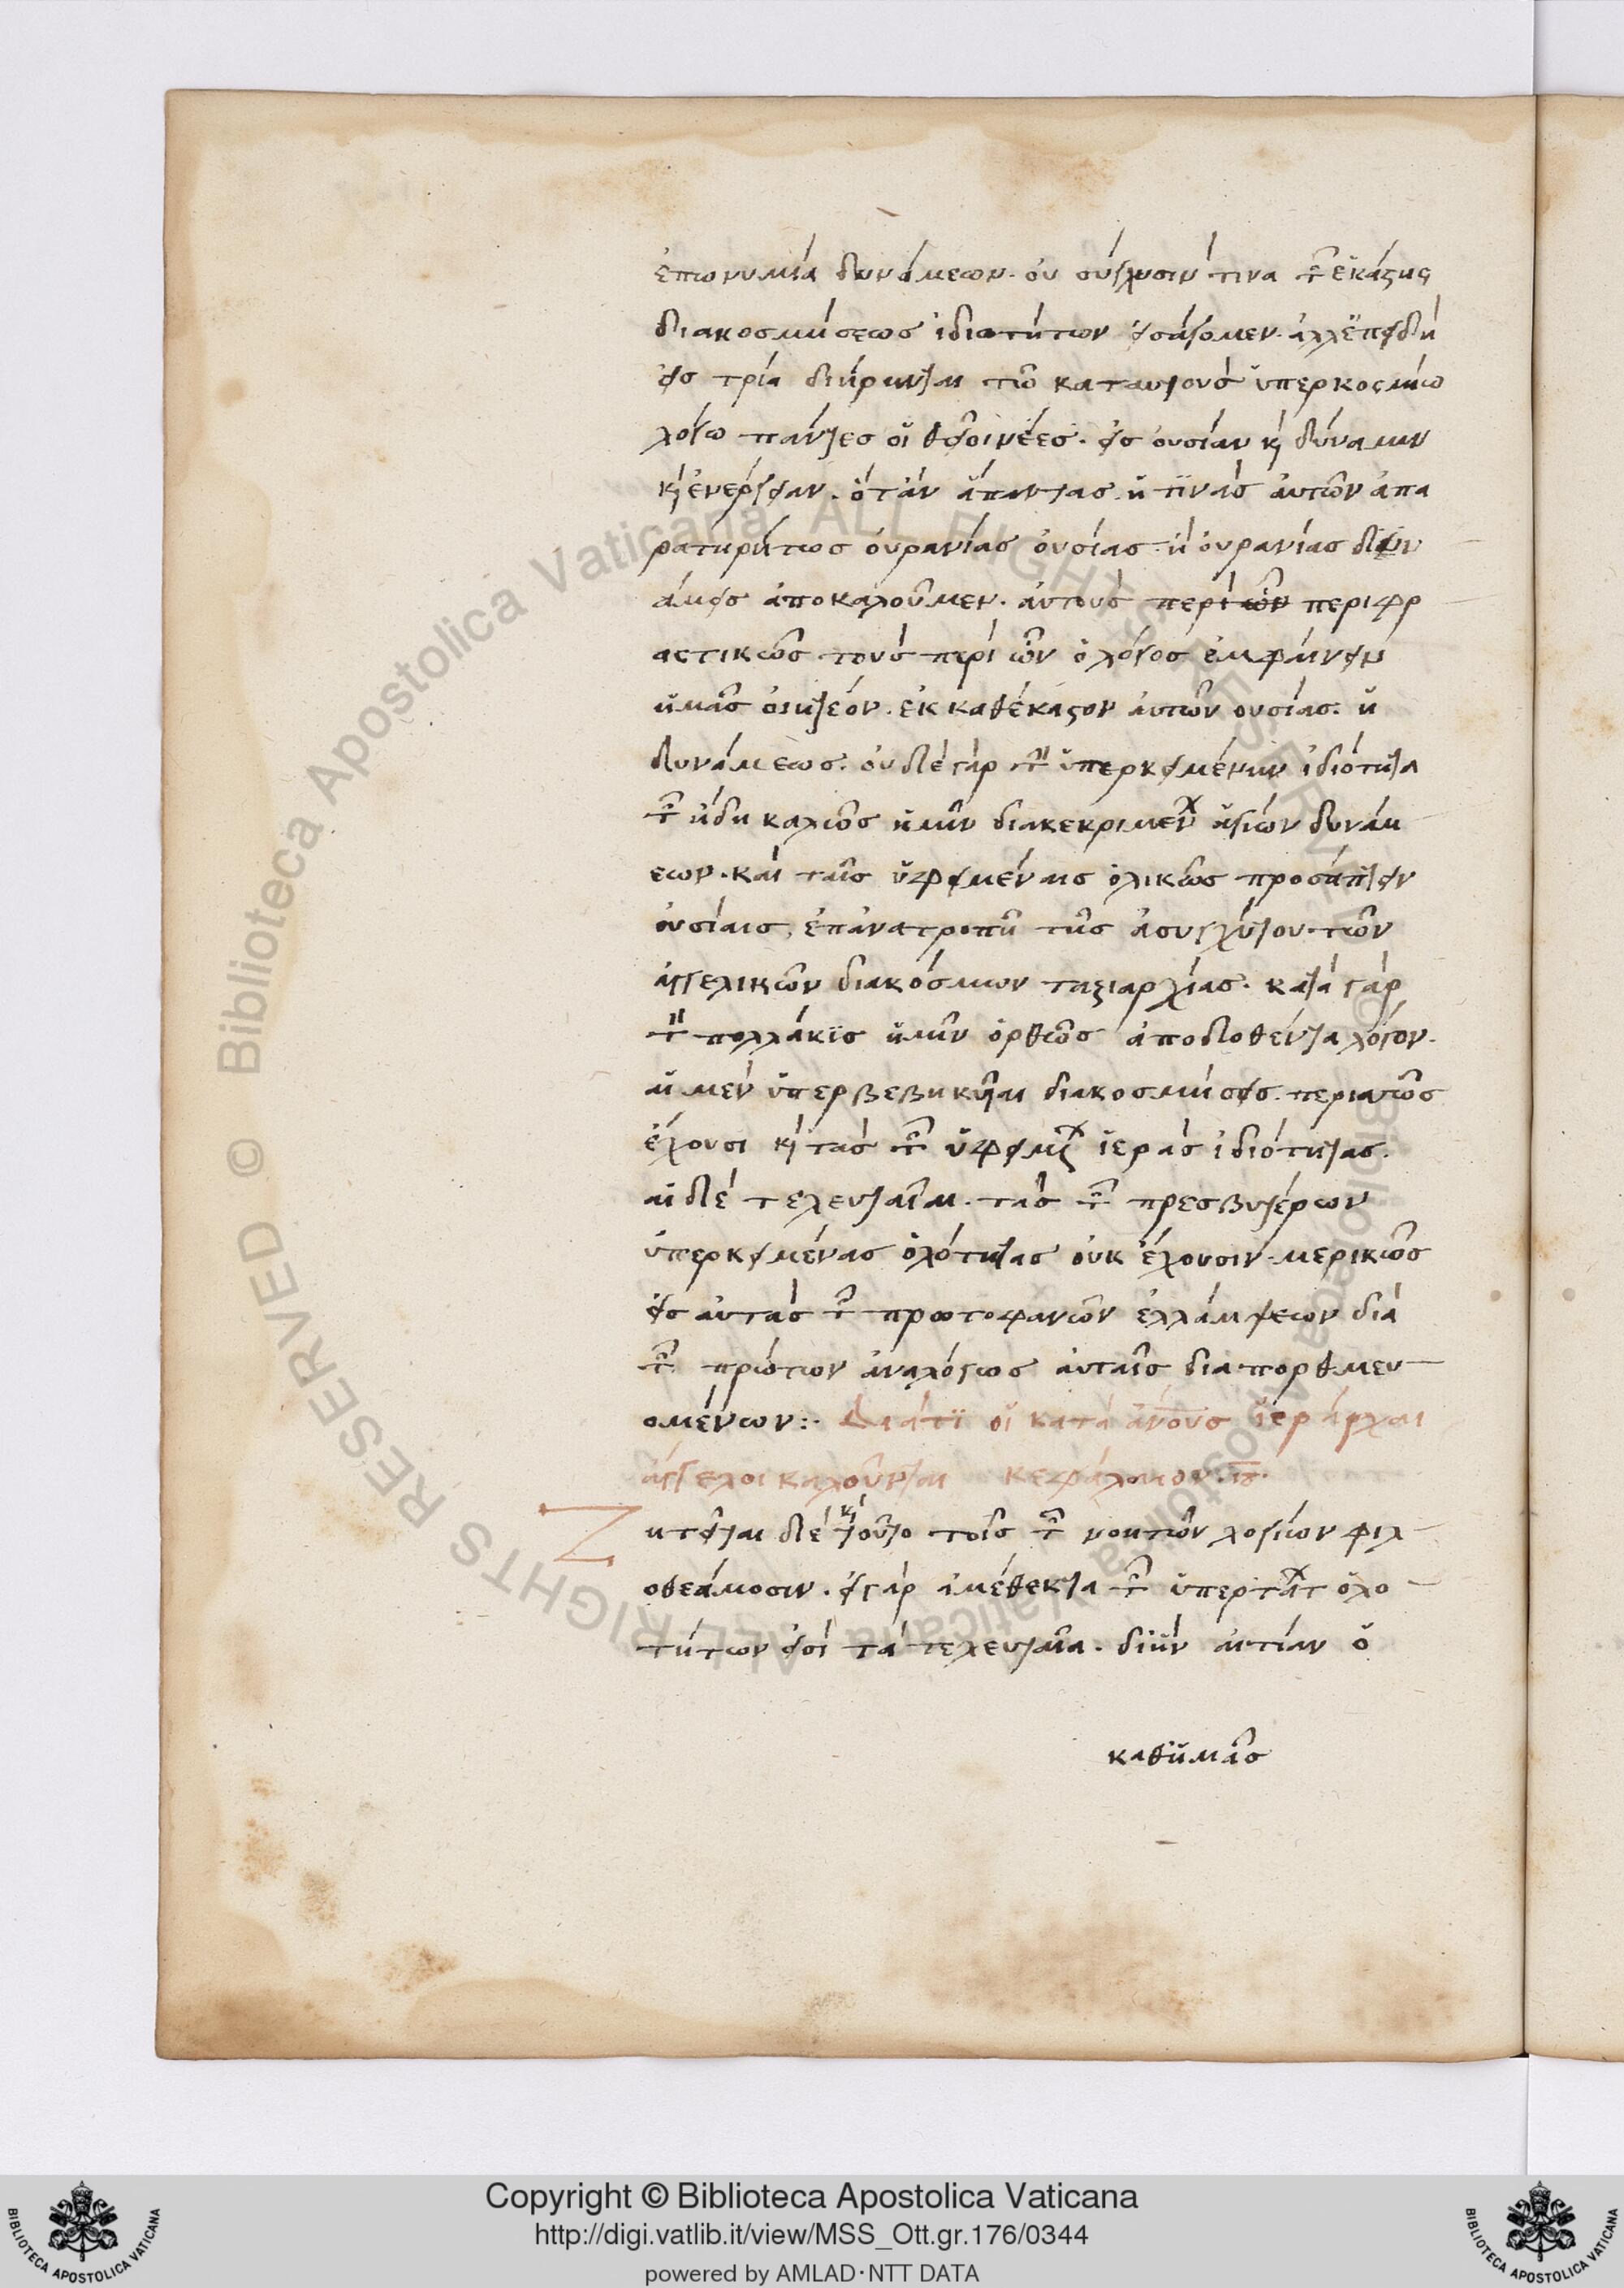 ἐπωνυμία δυνάμεων. οὐ σύγχυσίν τινα τῶν ἑκάστης
διακοσμήσεως ἰδιοτήτων εἰσάγομεν. ἀλλ' ἐπειδὴ
εἰς τρία διῄρηνται τῶ κατ' αὐτοὺς ὑπερκοσμίω
λόγω πάντες οἱ θεῖοι νόες. εἰς οὐσίαν καὶ δύναμιν
καὶ ἐνέργειαν. ὅταν ἅπαντας ἤ τινας αὐτῶν ἀπα
ρατηρήτως οὐρανίας οὐσίας. ἢ οὐρανίας δυν
άμεις ἀποκαλοῦμεν. αὐτοὺς περὶ ὧν περιφρ
αστικῶς τοὺς περὶ ὧν ὁ λόγος ἐμφαίνειν
ἡμᾶς οἰητέον. ἐκ καθ' ἕκαστον αὐτῶν οὐσίας. ἢ
δυνάμεως. οὐδὲ γὰρ τὴν ὑπερκειμένην ἰδιότητα
τῶν ἤδη καλῶς ἡμῖν διακεκριμένων ἁγίων δυνάμ
εων. καὶ ταῖς ὑφειμέναις ὁλικῶς προσάπτειν
οὐσίαις, ἐπ' ἀνατροπῆ τῆς ἀσυγχύτου τῶν
ἀγγελικῶν διακόσμων ταξιαρχίας. κατὰ γὰρ
τὸν πολλάκις ἡμῖν ὀρθῶς ἀποδοθέντα λόγον.
αἱ μὲν ὑπερβεβηκυῖαι διακοσμήσεις. περιαπῶς
ἔχουσι καὶ τὰς τῶν ὑφειμένων ἱερὰς ἰδιότητας.
αἱ δὲ τελευταῖαι. τὰς τῶν πρεσβυτέρων
ὑπερκειμένας ὁλότητας οὐκ ἔχουσιν. μερικῶς
εἰς αὐτὰς τῶν πρωτοφανῶν ἐλλάμψεων διὰ
τῶν πρώτων ἀναλόγως αὐταῖς διαπορθμευ
ομένων:. Διατί οἱ κατὰ ἀνους ἱεράρχαι
ἄγγελοι καλοῦνται κεφάλαιον. ιβ.
Ζητεῖται δὲ καὶ τοῦτο τοῖς τῶν νοητῶν λογίων φιλ
οθεάμοσιν. εἰ γὰρ ἀμέθεκτα τῶν ὑπερτάτων ὁλο
τήτων εἰσὶ τὰ τελευταῖα. δι' ἣν αἰτίαν ὁ
καθ' ἡμᾶς
Copyright © Biblioteca Apostolica Vaticana
http://digi.vatlib.it/view/MSS_Ott.gr.176/0344
powered by AMLAD·NTT DATA
BIBLIOTECA APOSTOLICA VATICANA
BIBLIOTECA APOSTOLICA VATICANA
© Biblioteca Apostolica Vaticana ALL RIGHTS RESERVED
© Biblioteca Apostolica Vaticana ALL RIGHTS RESERVED